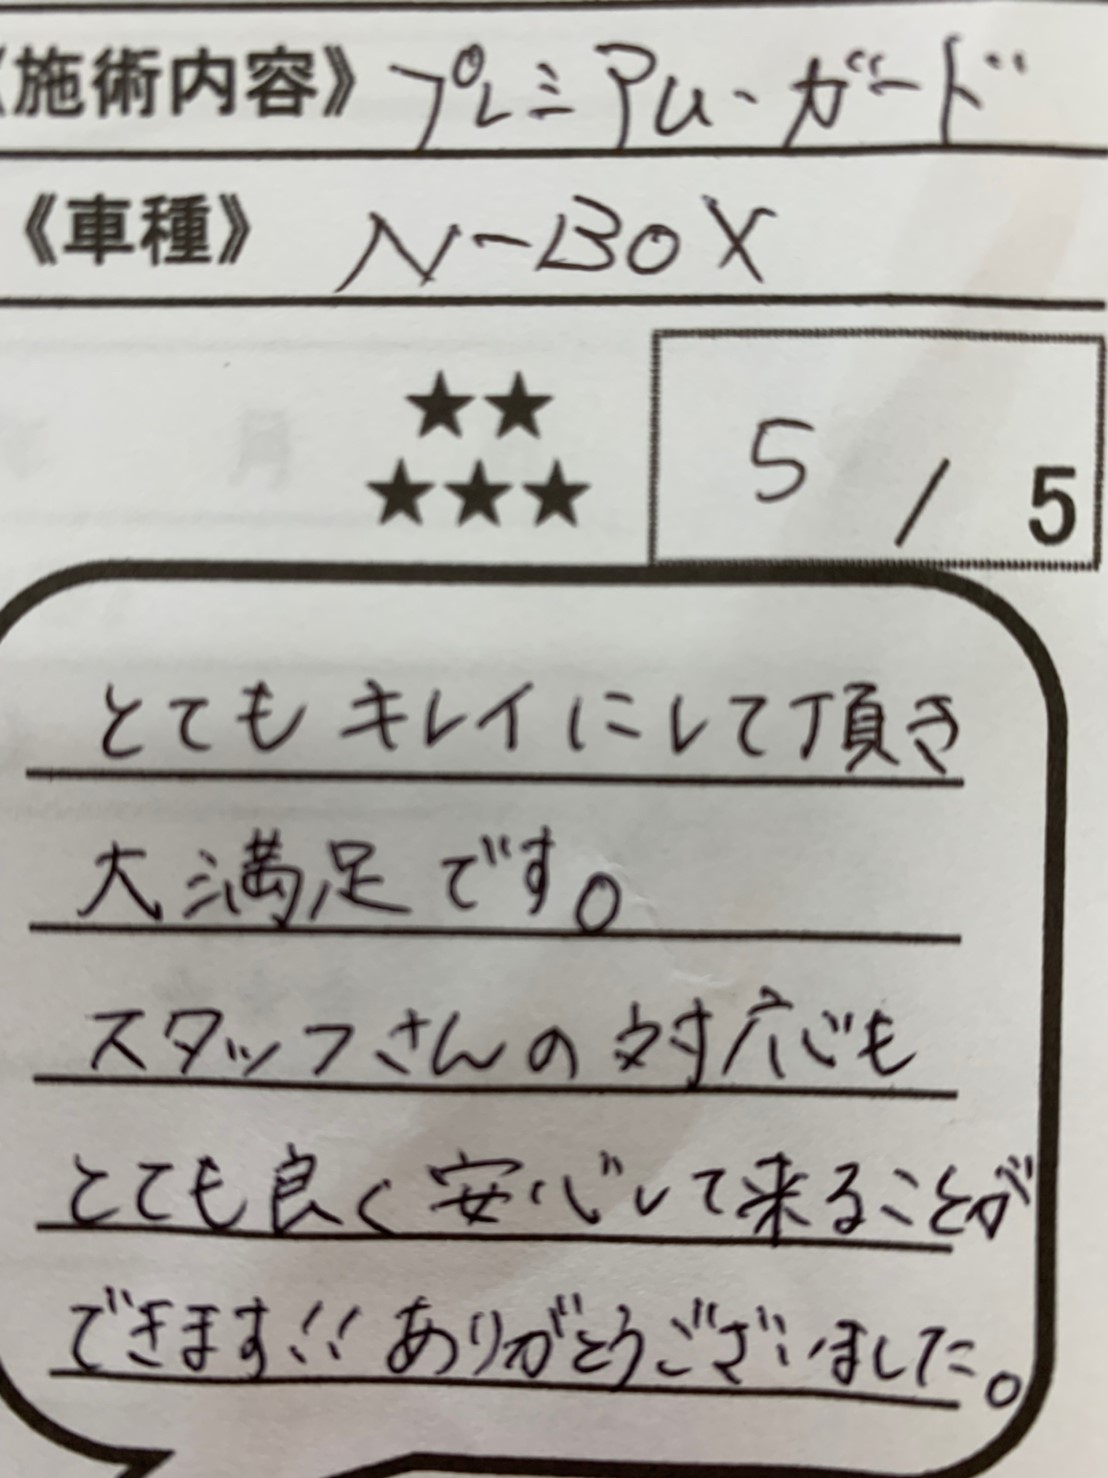 《施術内容》 プレミアム・ガード
《車種》 N-BOX
★★
★★★
5 / 5
とてもキレイにして頂き
大満足です。
スタッフさんの対応も
とても良く安心して来ることが
できます!! ありがとうございました。